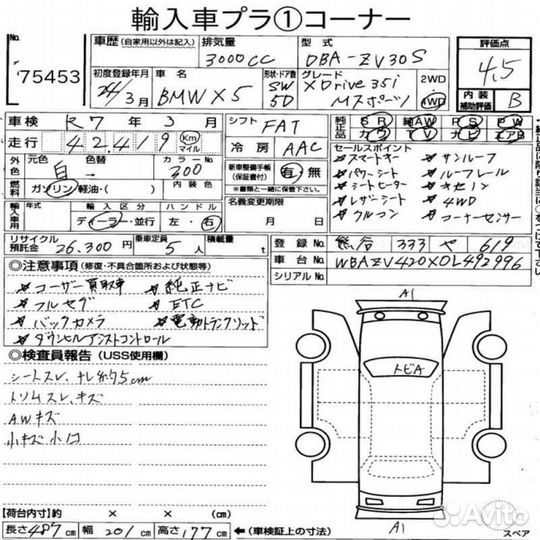 輸入車プラ①コーナー
No.
75453
車歴 (自家用以外は記入)
排気量
3000CC
型式
DBA-ZV30S
評価点
4.5
初度登録年月
24/3月
車名
BMW X5
形状・ドア数
SW
5D
グレード
XDrive35i
Mスポーツ
2WD
4WD
内装
補助評価
B
車検 R7年3月
シフト FAT
純正品
SR 純AW PS PW
カワ TV ナビ エアB
走行 42,419 Km マイル
冷房 AAC
セールスポイント
スマートキー
サンルーフ
パワーシート
ルーフレール
シートヒーター
キセノン
レザーシート
4WD
クルコン
コーナーセンサー
外色
元色
白→
色替
カラーNo.
300
新車整備手帳
(保証書付)
有・無
※一緒にご提出ください。
燃料
ガソリン・軽油・( )
内装色
名義変更期限
月 日
輸入車用
年式
輸入区分
ハンドル
ディーラー・並行
左・右
リサイクル
預託金
26,300円
乗車定員
5人
積載量
t
登録No.
熊谷 333 や 619
車台No.
WBAZV420X0L492996
シリアルNo.
◎注意事項 (修復・不具合箇所および状態等)
ユーザー買取車
純正ナビ
フルセグ
ETC
バックカメラ
電動トランクリッド
ダウンヒルアシストコントロール
◎検査員報告 (USS使用欄)
シートスレ、
トリムスレ、キズ
AWキズ
小キズ小凹
A1
トビA
A1
スペア
【荷台内寸】約 × × (cm)
長さ 487cm 幅 201cm 高さ 177cm ◀(車検証上の寸法)
Avito